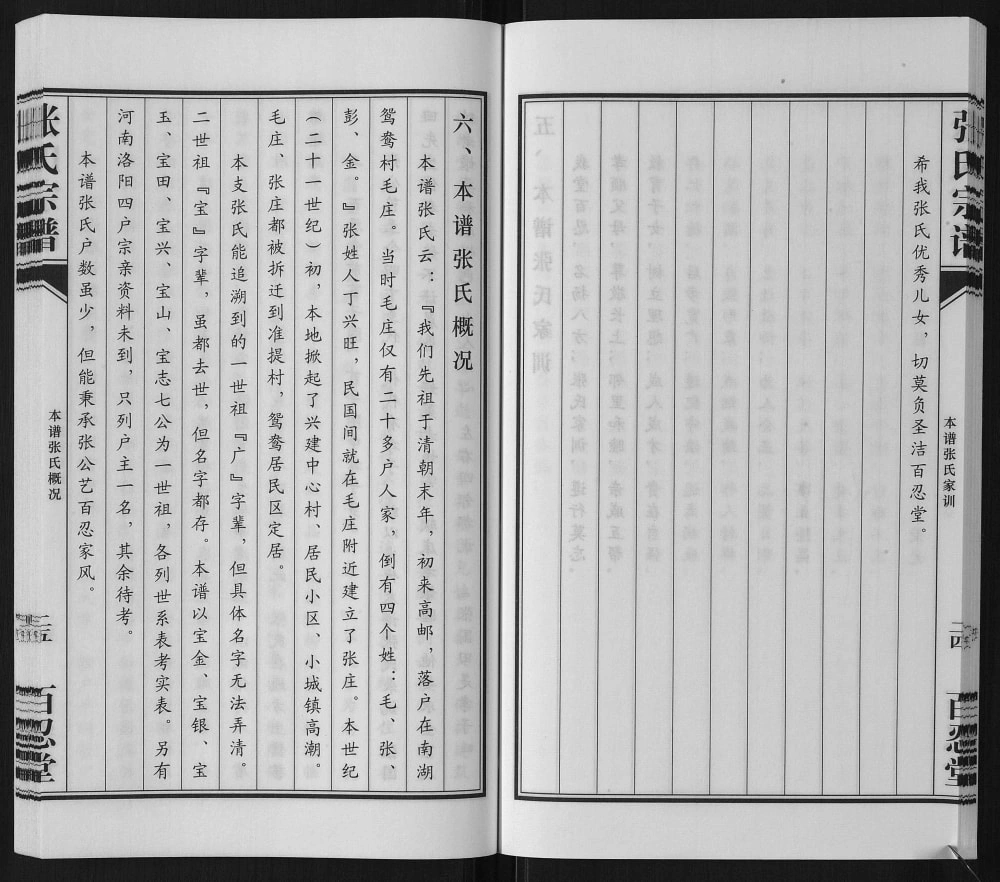 张氏宗谱
本谱张氏家训
二四
百忍堂
希我张氏优秀儿女，切莫负圣洁百忍堂。
六、本谱张氏概况
本谱张氏云：『我们先祖于清朝末年，初来高邮，落户在南湖
鸳鸯村毛庄。当时毛庄仅有二十多户人家，倒有四个姓：毛、张、
彭、金。』张姓人丁兴旺，民国间就在毛庄附近建立了张庄。本世纪
（二十一世纪）初，本地掀起了兴建中心村、居民小区、小城镇高潮。
毛庄、张庄都被拆迁到准提村，鸳鸯居民区定居。
本支张氏能追溯到的一世祖『广』字辈，但具体名字无法弄清。
二世祖『宝』字辈，虽都去世，但名字都存。本谱以宝金、宝银、宝
玉、宝田、宝兴、宝山、宝志七公为一世祖，各列世系表考实表。另有
河南洛阳四户宗亲资料未到，只列户主一名，其余待考。
本谱张氏户数虽少，但能秉承张公艺百忍家风。
张氏宗谱
本谱张氏概况
二五
百忍堂